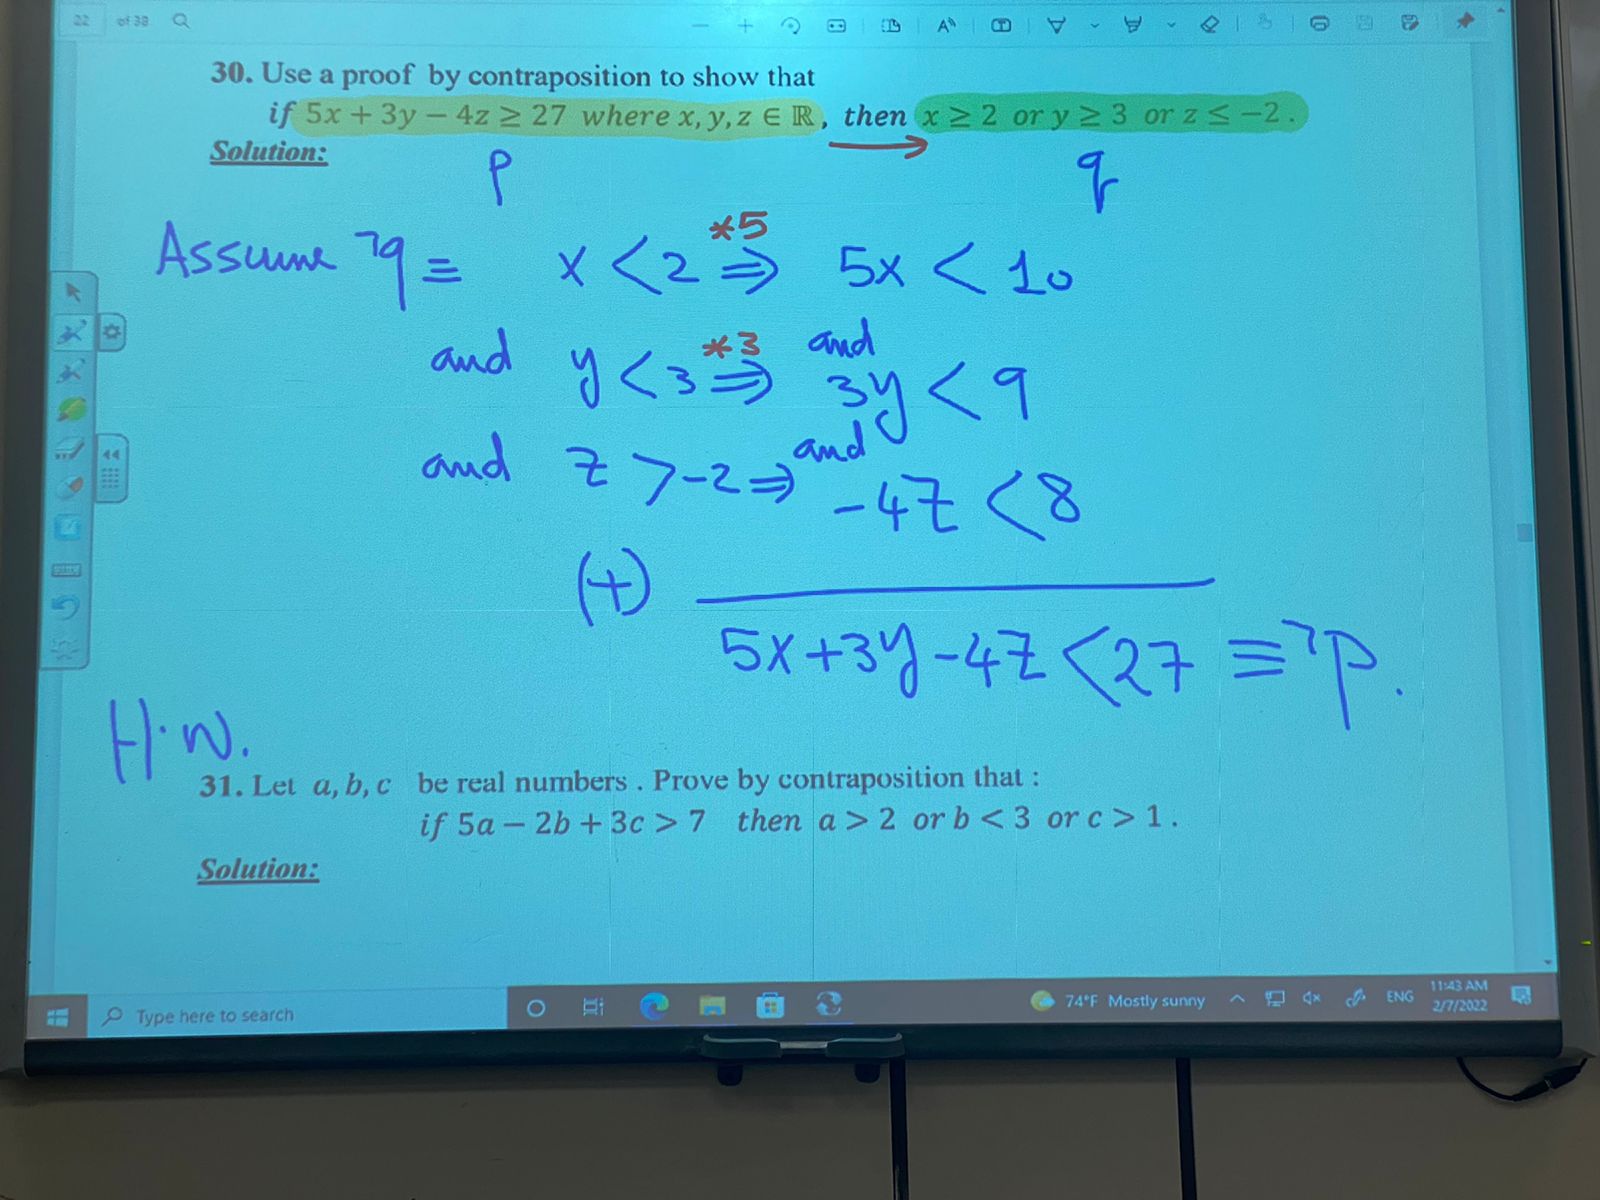 22 of 38
30. Use a proof by contraposition to show that
if 5x + 3y − 4z ≥ 27 where x, y, z ∈ ℝ, then x ≥ 2 or y ≥ 3 or z ≤ −2.
Solution:
p q
Assume ¬q ≡ x < 2 *5 ⇒ 5x < 10
and y < 3 *3 ⇒ and 3y < 9
and z > -2 ⇒ and -4z < 8
(+)
5x+3y-4z < 27 ≡ ¬p.
H.W.
31. Let a, b, c be real numbers . Prove by contraposition that :
if 5a − 2b + 3c > 7 then a > 2 or b < 3 or c > 1 .
Solution:
Type here to search
74°F Mostly sunny
ENG
11:43 AM
2/7/2022